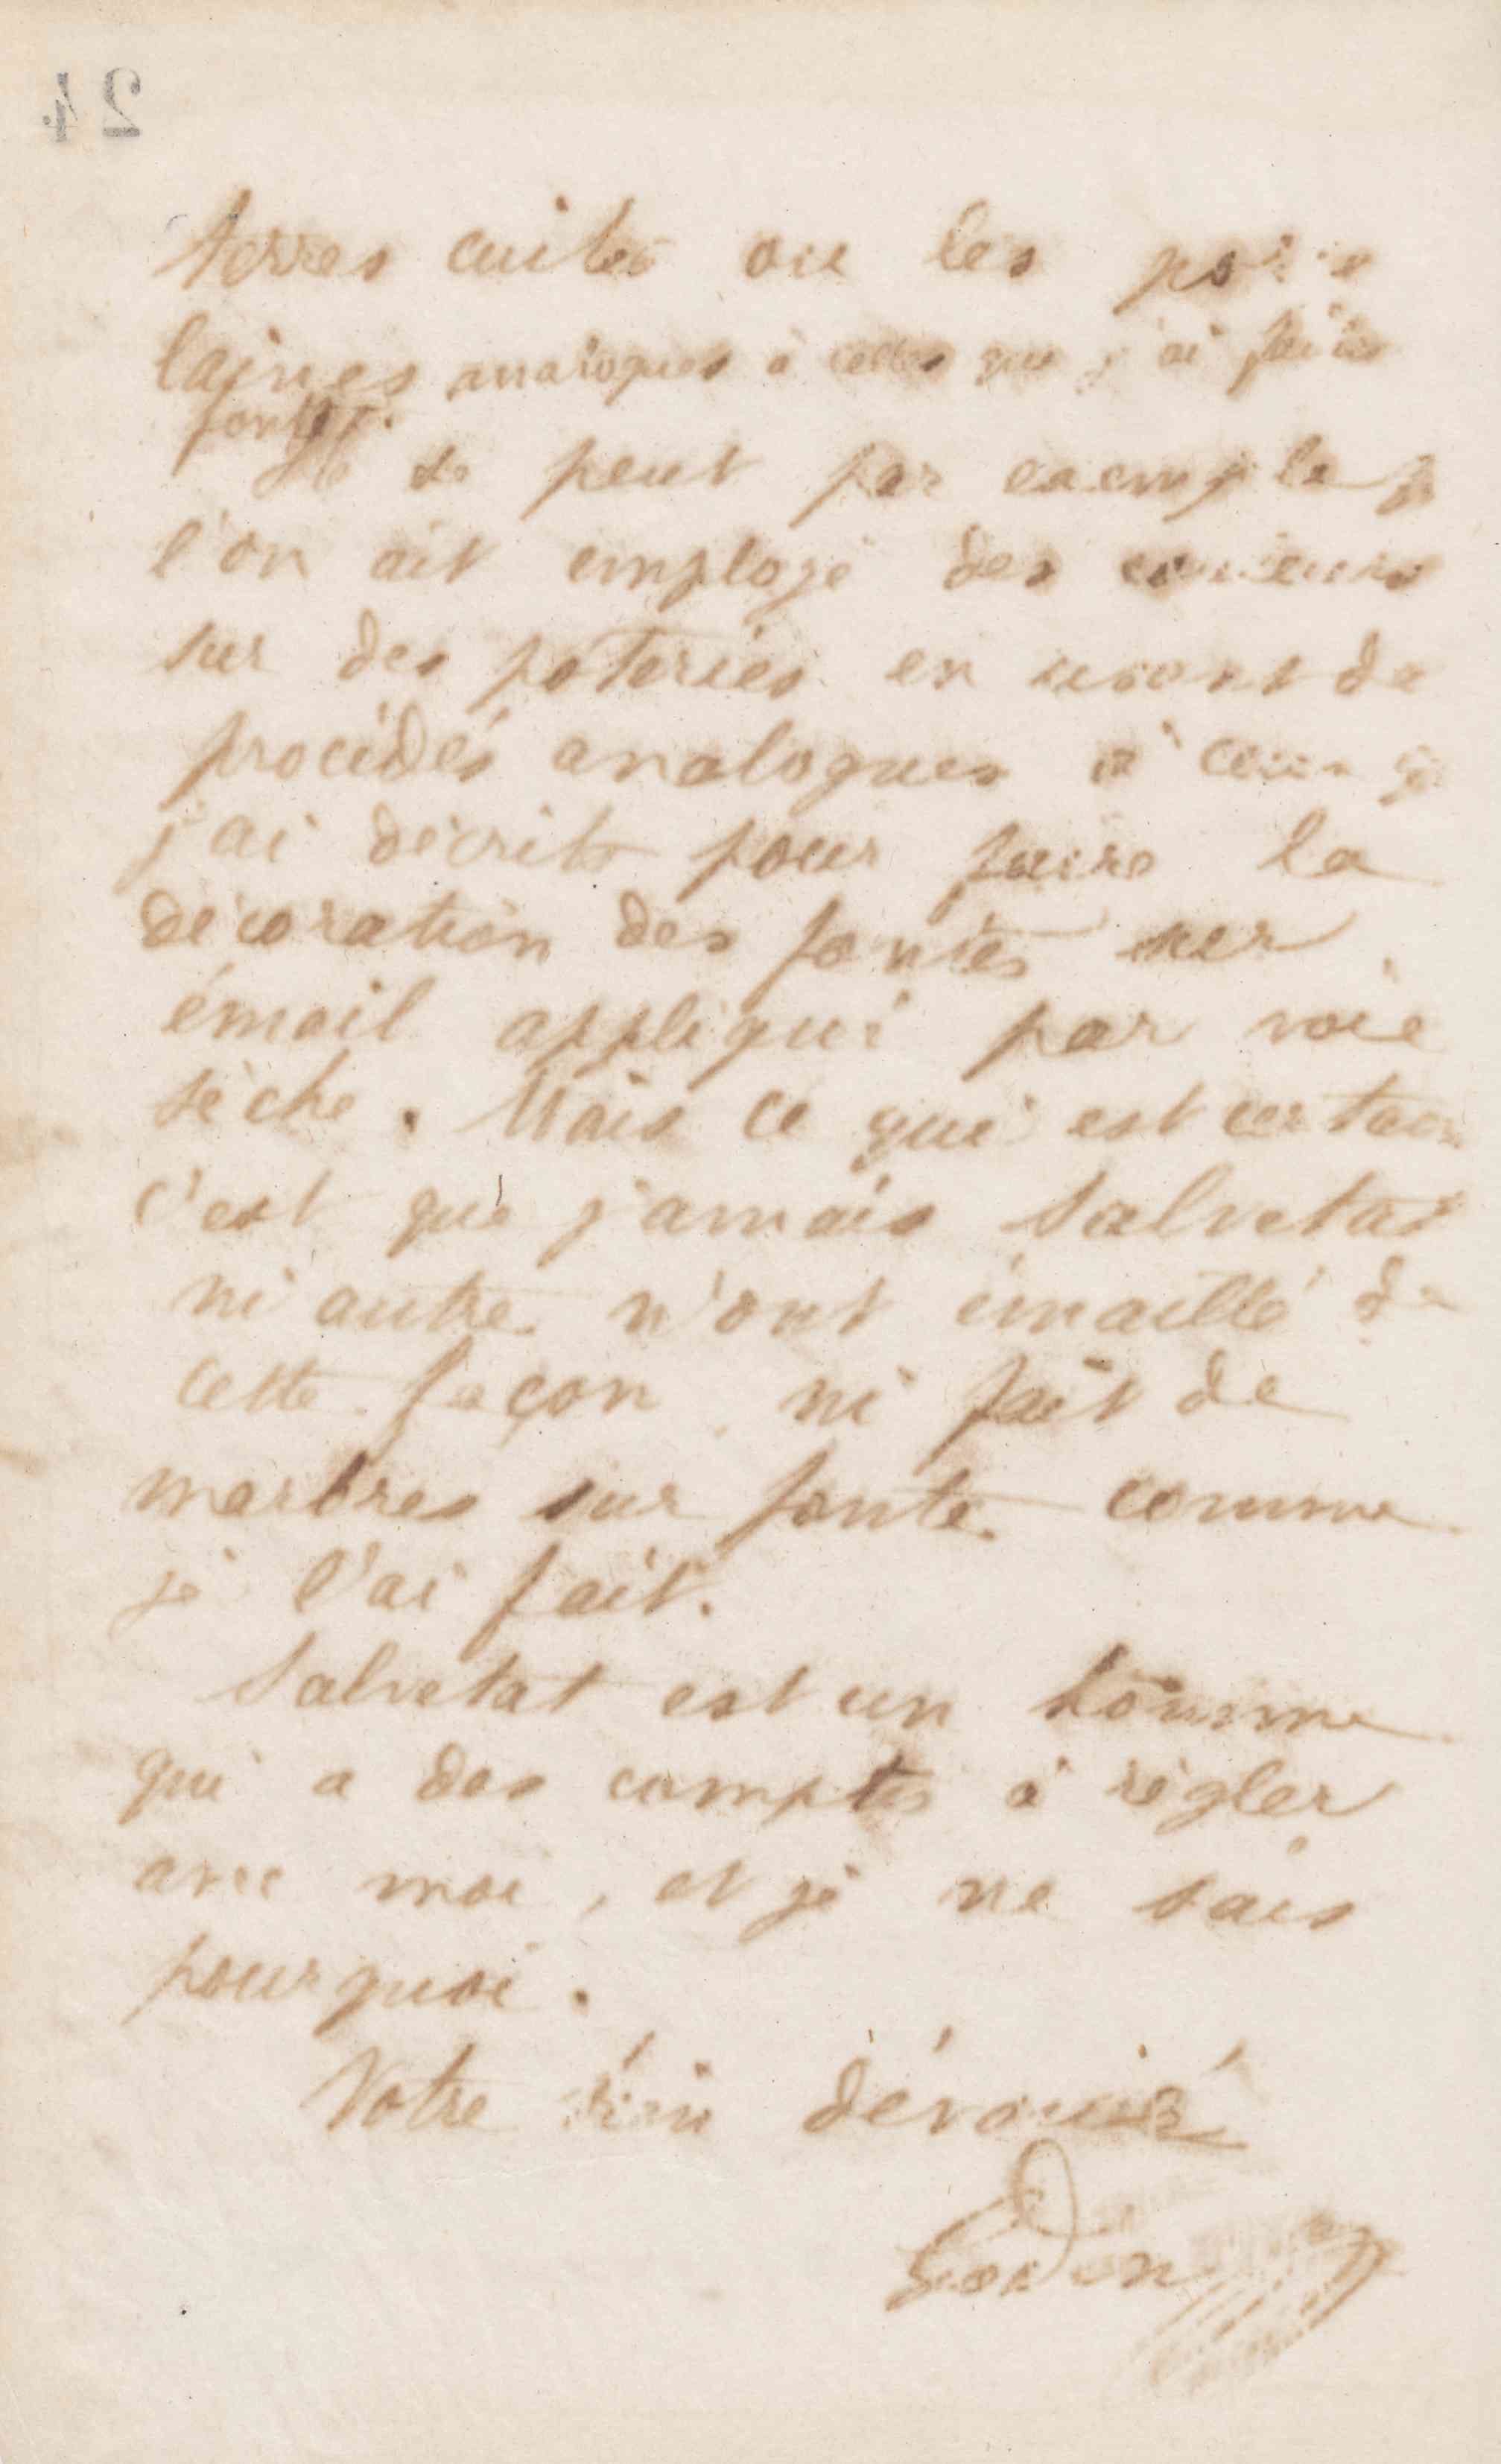 24
terres cuites ou les porce
laines analogues à celles que j'ai faites
fonte.
Il se peut par exemple que
l'on ait employé des couleurs
sur des poteries en usant de
procédés analogues à ceux que
j'ai décrits pour faire la
décoration des fontes sur
émail appliqué par voie
sèche. Mais ce qui est certain
c'est que jamais Salvetat
ni autre n'ont émaillé de
cette façon ni fait de
marbres sur fonte comme
je l'ai fait.
Salvetat est un homme
qui a des comptes à régler
avec moi, et je ne sais
pourquoi.
Votre dévoué
Godin